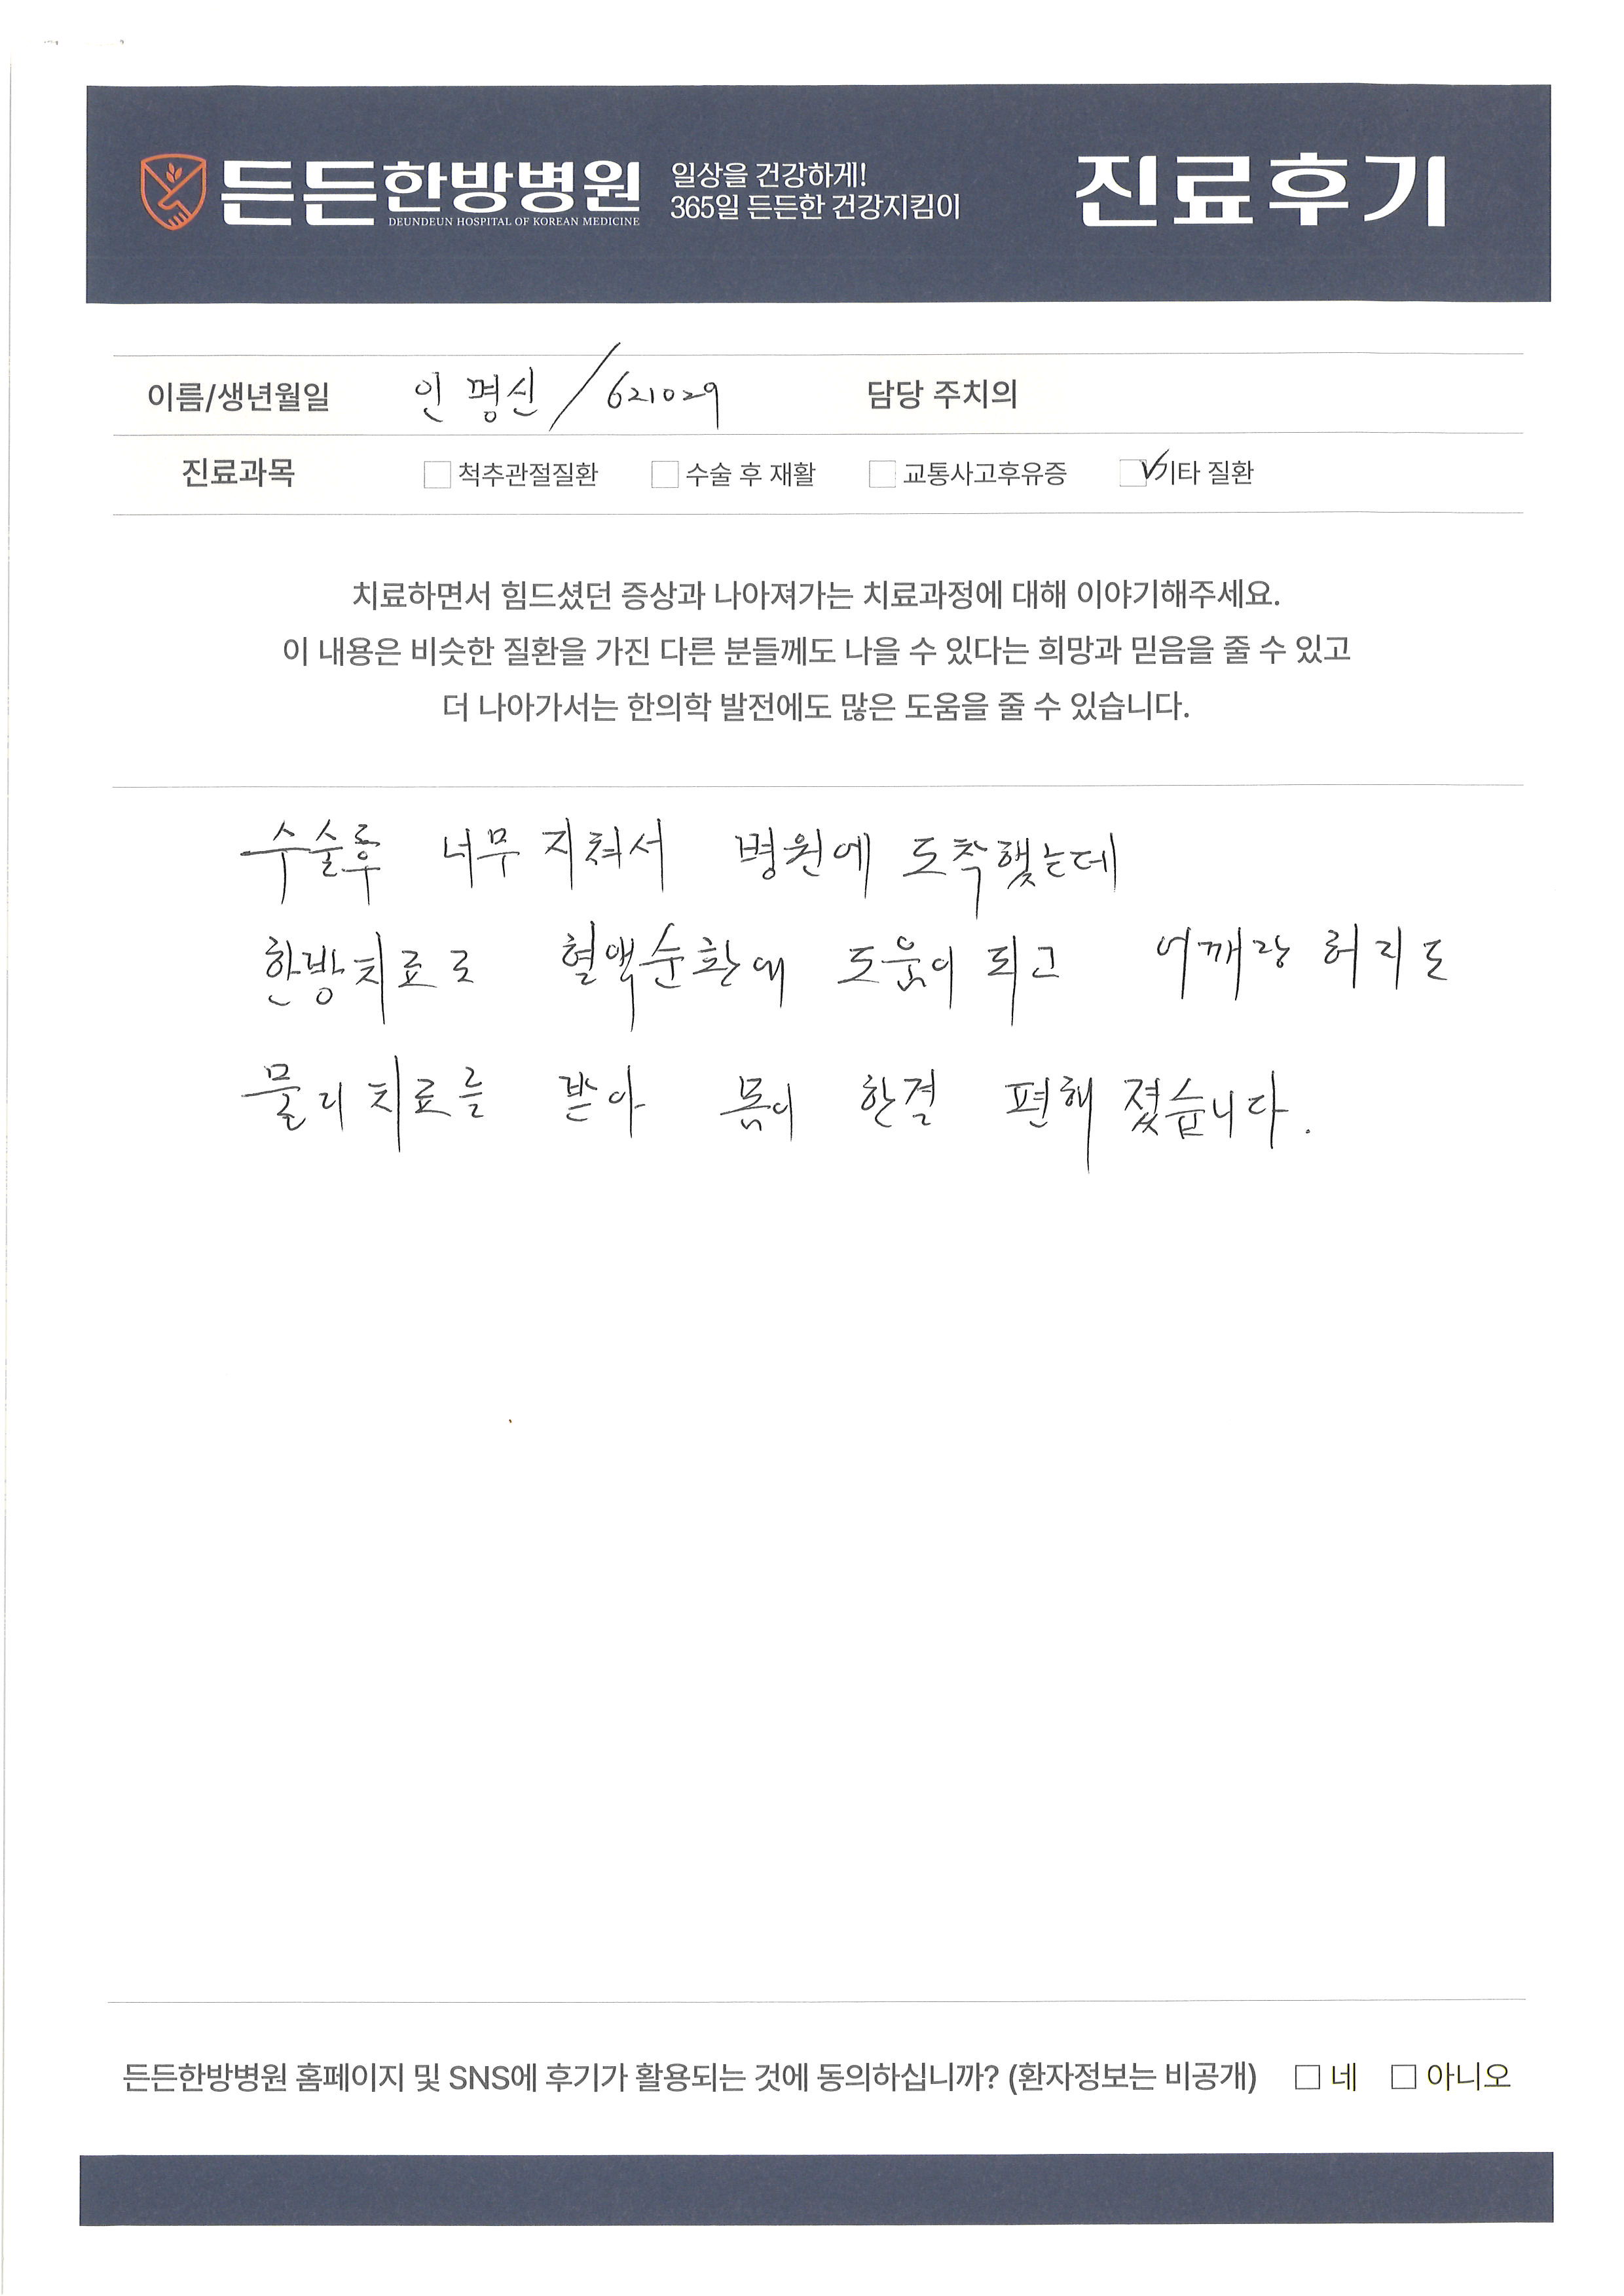 든든한방병원
DEUNDEUN HOSPITAL OF KOREAN MEDICINE
일상을 건강하게!
365일 든든한 건강지킴이
진료후기
이름/생년월일 인명신 / 621029 담당 주치의
진료과목 척추관절질환 수술 후 재활 교통사고후유증 기타 질환
치료하면서 힘드셨던 증상과 나아져가는 치료과정에 대해 이야기해주세요.
이 내용은 비슷한 질환을 가진 다른 분들께도 나을 수 있다는 희망과 믿음을 줄 수 있고
더 나아가서는 한의학 발전에도 많은 도움을 줄 수 있습니다.
수술후 너무 지쳐서 병원에 도착했는데
한방치료로 혈액순환에 도움이 되고 어깨랑 허리도
물리치료를 받아 몸이 한결 편해 졌습니다.
든든한방병원 홈페이지 및 SNS에 후기가 활용되는 것에 동의하십니까? (환자정보는 비공개) 네 아니오